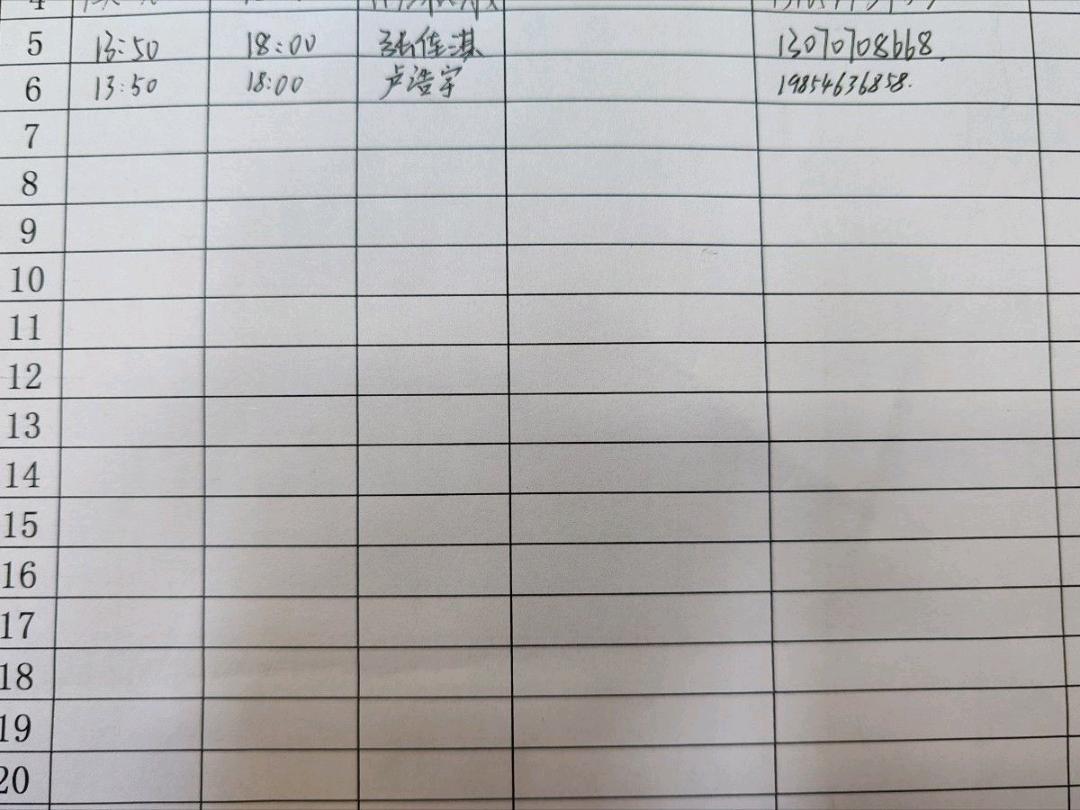 5 13:50 18:00 张佳淇 13070708668.
6 13:50 18:00 卢浩宇 19854636858.
7
8
9
10
11
12
13
14
15
16
17
18
19
20